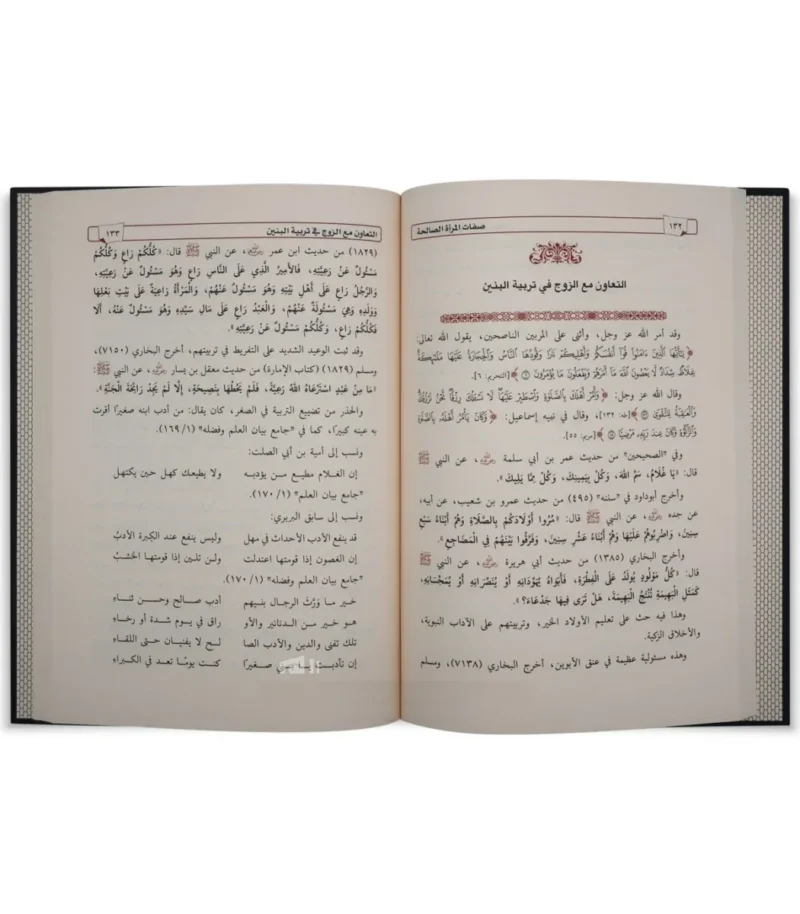 ١٣٢
صفات المرأة الصالحة
التعاون مع الزوج في تربية البنين
وقد أمر الله عز وجل، وأثنى على المربين الناصحين، يقول الله تعالى:
﴿يَٰٓأَيُّهَا ٱلَّذِينَ ءَامَنُوا۟ قُوٓا۟ أَنفُسَكُمْ وَأَهْلِيكُمْ نَارًا وَقُودُهَا ٱلنَّاسُ وَٱلْحِجَارَةُ عَلَيْهَا مَلَٰٓئِكَةٌ
غِلَاظٌ شِدَادٌ لَّا يَعْصُونَ ٱللَّهَ مَآ أَمَرَهُمْ وَيَفْعَلُونَ مَا يُؤْمَرُونَ ٦﴾ [التحريم: ٦].
وقال الله عز وجل: ﴿وَأْمُرْ أَهْلَكَ بِٱلصَّلَوٰةِ وَٱصْطَبِرْ عَلَيْهَا لَا نَسْـَٔلُكَ رِزْقًا نَّحْنُ نَرْزُقُكَ
وَٱلْعَٰقِبَةُ لِلتَّقْوَىٰ﴾ [طه: ١٣٢]، وقال في نبيه إسماعيل: ﴿وَكَانَ يَأْمُرُ أَهْلَهُۥ بِٱلصَّلَوٰةِ
وَٱلزَّكَوٰةِ وَكَانَ عِندَ رَبِّهِۦ مَرْضِيًّا ٥٥﴾ [مريم: ٥٥].
وفي "الصحيحين" من حديث عمر بن أبي سلمة رضي الله عنه، عن النبي ﷺ
قال: «يَا غُلَامُ، سَمِّ اللهَ، وَكُلْ بِيَمِينِكَ، وَكُلْ مِمَّا يَلِيكَ».
وأخرج أبوداود في "سننه" (٤٩٥) من حديث عمرو بن شعيب، عن أبيه،
عن جده رضي الله عنه، عن النبي ﷺ قال: «مُرُوا أَوْلَادَكُمْ بِالصَّلَاةِ وَهُمْ أَبْنَاءُ سَبْعِ
سِنِينَ، وَاضْرِبُوهُمْ عَلَيْهَا وَهُمْ أَبْنَاءُ عَشْرِ سِنِينَ، وَفَرِّقُوا بَيْنَهُمْ فِي الْمَضَاجِعِ».
وأخرج البخاري (١٣٨٥) من حديث أبي هريرة رضي الله عنه، عن النبي ﷺ
قال: «كُلُّ مَوْلُودٍ يُولَدُ عَلَى الْفِطْرَةِ، فَأَبَوَاهُ يُهَوِّدَانِهِ أَوْ يُنَصِّرَانِهِ أَوْ يُمَجِّسَانِهِ،
كَمَثَلِ الْبَهِيمَةِ تُنْتَجُ الْبَهِيمَةَ، هَلْ تَرَى فِيهَا جَدْعَاءَ؟».
وهذا فيه حث على تعليم الأولاد الخير، وتربيتهم على الآداب النبوية،
والأخلاق الزكية.
وهذه مسئولية عظيمة في عنق الأبوين، أخرج البخاري (٧١٣٨)، ومسلم
التعاون مع الزوج في تربية البنين
١٣٣
(١٨٢٩) من حديث ابن عمر رضي الله عنه، عن النبي ﷺ قال: «كُلُّكُمْ رَاعٍ وَكُلُّكُمْ
مَسْئُولٌ عَنْ رَعِيَّتِهِ، فَالْأَمِيرُ الَّذِي عَلَى النَّاسِ رَاعٍ وَهُوَ مَسْئُولٌ عَنْ رَعِيَّتِهِ،
وَالرَّجُلُ رَاعٍ عَلَى أَهْلِ بَيْتِهِ وَهُوَ مَسْئُولٌ عَنْهُمْ، وَالْمَرْأَةُ رَاعِيَةٌ عَلَى بَيْتِ بَعْلِهَا
وَوَلَدِهِ وَهِيَ مَسْئُولَةٌ عَنْهُمْ، وَالْعَبْدُ رَاعٍ عَلَى مَالِ سَيِّدِهِ وَهُوَ مَسْئُولٌ عَنْهُ، أَلَا
فَكُلُّكُمْ رَاعٍ، وَكُلُّكُمْ مَسْئُولٌ عَنْ رَعِيَّتِهِ».
وقد ثبت الوعيد الشديد على التفريط في تربيتهم، أخرج البخاري (٧١٥٠)،
ومسلم (١٨٢٩) (كتاب الإمارة) من حديث معقل بن يسار رضي الله عنه، عن النبي ﷺ:
«مَا مِنْ عَبْدٍ اسْتَرْعَاهُ اللهُ رَعِيَّةً، فَلَمْ يَحُطْهَا بِنَصِيحَةٍ، إِلَّا لَمْ يَجِدْ رَائِحَةَ الْجَنَّةِ».
والحذر من تضييع التربية في الصغر، كان يقال: من أدب ابنه صغيرًا أقرت
به عينه كبيرًا، كما في «جامع بيان العلم وفضله» (١/١٦٩).
ونسب إلى أمية بن أبي الصلت:
إن الغلام مطيع من يؤدبه ولا يطيعك كهل حين يكتهل
«جامع بيان العلم» (١/١٧٠).
ونسب إلى سابق البربري:
قد ينفع الأدب الأحداث في مهل وليس ينفع عند الكبرة الأدبُ
إن الغصون إذا قومتها اعتدلت ولن تلين إذا قومتها الخشبُ
«جامع بيان العلم وفضله» (١/١٧٠).
خير ما ورّث الرجال بنيهم أدب صالح وحسن ثناءِ
هو خير من الدنانير والأو راق في يوم شدة أو رخاءِ
تلك تفنى والدين والأدب الصا لح لا يفنيان حتى اللقاءِ
إن تأدبت صغيرًا كنت يومًا تعد في الكبراءِ